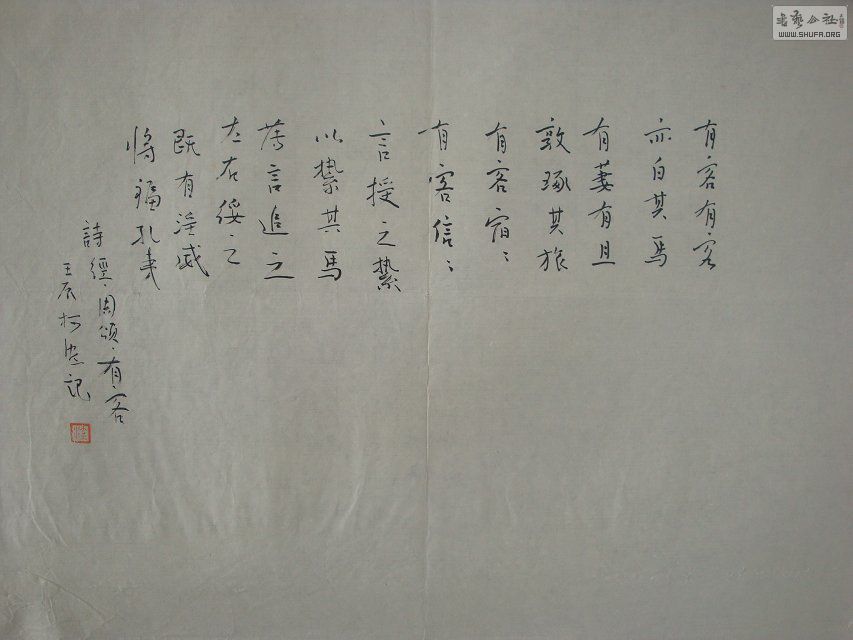 有客有客
亦白其馬
有萋有且
敦琢其旅
有客宿〻
有客信〻
言授之縶
以縶其馬
薄言追之
左右綏之
既有淫威
福孔夷
詩經·周頌·有客
壬辰 記
書藝公社
WWW.SHUFA.ORG